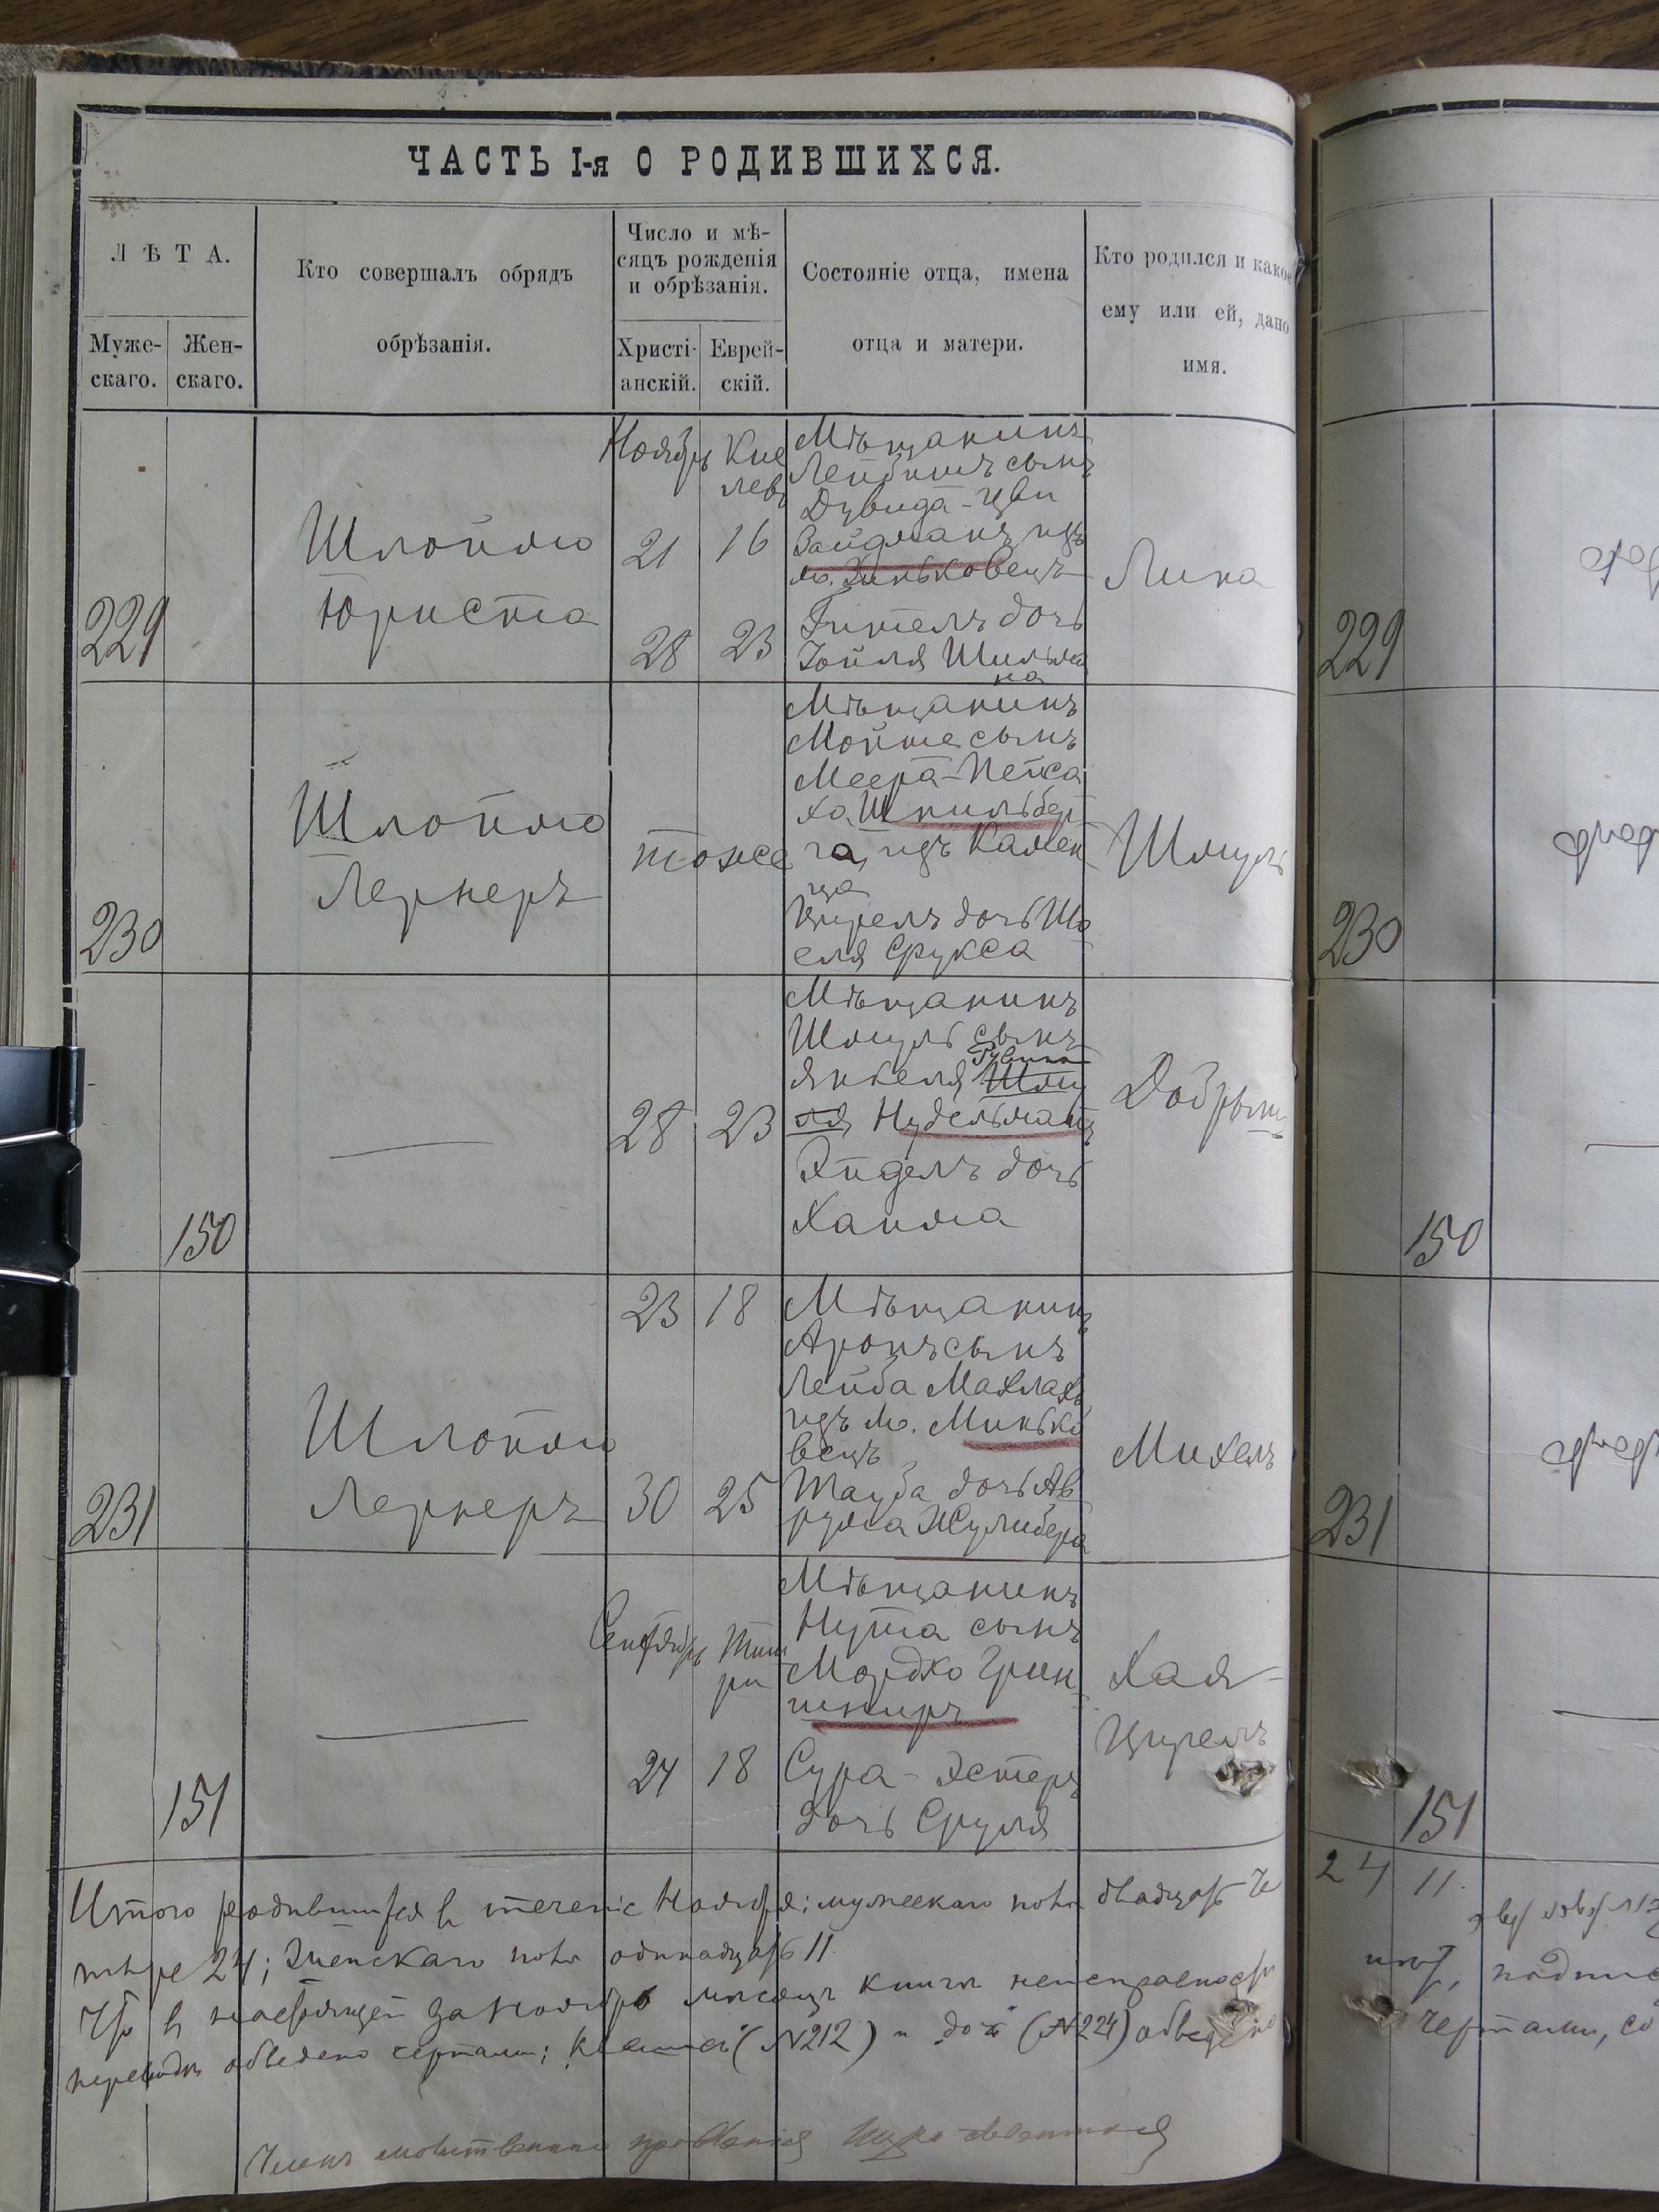 ЧАСТЬ I-я О РОДИВШИХСЯ.
ЛѢТА.
Муже-
скаго.
Жен-
скаго.
Кто совершалъ обрядъ
обрѣзанія.
Число и мѣ-
сяцъ рожденія
и обрѣзанія.
Христі-
анскій.
Еврей-
скій.
Состояніе отца, имена
отца и матери.
Кто родился и какое
ему или ей, дано
имя.
229
Шлойма
Юриста
Ноябрь
21
28
Кис
левъ
16
23
Мѣщанинъ
Лейбишъ сынъ
Дувида-Цви
Зайдманъ изъ
м. Зиньковецъ
Гителъ дочь
Іойля Шильма
на
Липа
229
230
Шлойма
Лернеръ
тоже
Мѣщанинъ
Мойше сынъ
Меера-Пейса
ха Шпильбер
га, изъ Камен
ца
Цирелъ дочь Шо
еля Срукса
Шмуль
230
150
28
23
Мѣщанинъ
Шмуль сынъ
Рувина
Янкеля Шму
ля Нудельманъ
Эйделъ дочь
Хаима
Добрышъ
150
231
Шлойма
Лернеръ
23
30
18
25
Мѣщанинъ
Аронъ сынъ
Лейба Махлахъ
изъ м. Минько
вецъ
Тауба дочь Ав
рума Жулибера
Михель
231
151
Сентябрь
24
Тиш
ри
18
Мѣщанинъ
Нута сынъ
Мордко Грин
шпиръ
Сура-Эстеръ
дочь Сруля
Хая-
Цирелъ
151
24 11.
Итого родившихся въ теченіе Ноября: мужескаго пола двадцать че
тыре 24; женскаго пола одинадцать 11
Что въ настоящей за Ноябрь мѣсяцъ книги неисправности
обведено чертами; (№212) и "дож" (№224) обведено
подпис
чертами, со
Членъ молитвеннаго правленія